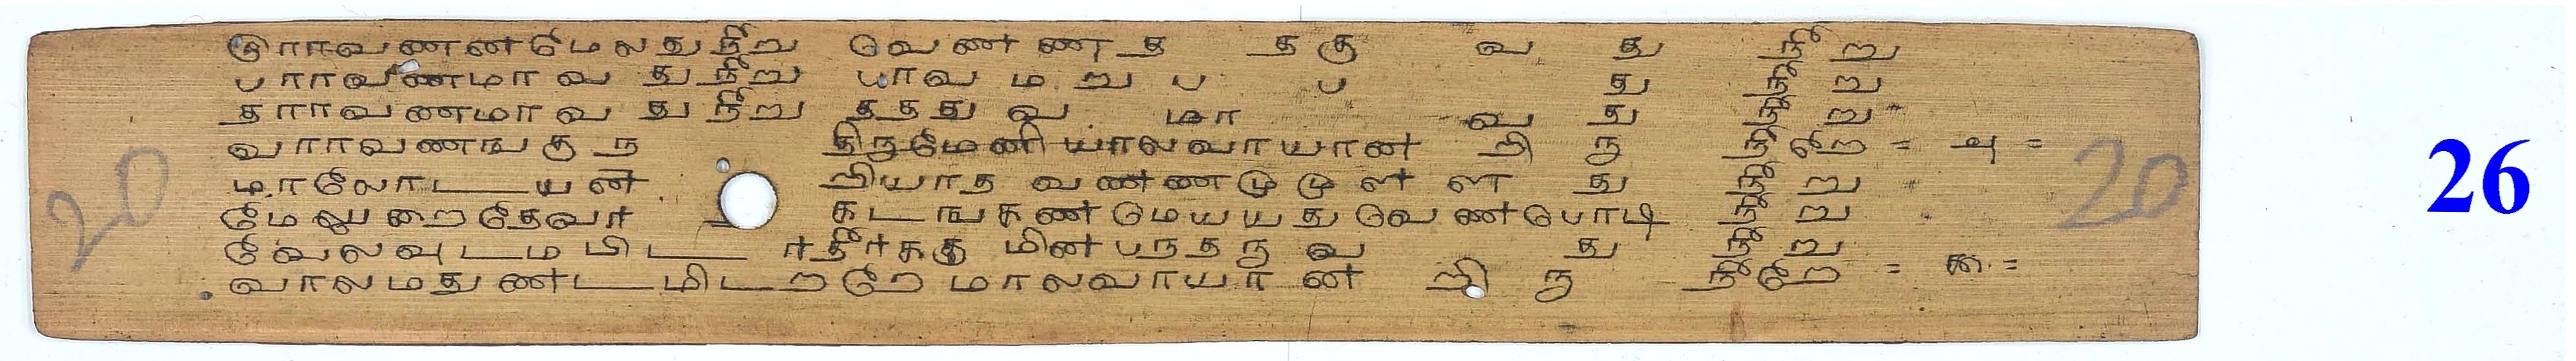 இராவணன்மேலதுநீறு வெண்ணத தகு வ து நீ று
பராவணமாவ துநீறு பாவ ம று ப ப து நீ று
தராவணமாவ துநீறு தத்து வ மா வ து நீ று
வராவணங கு ந திருமேனி யாலவாயான றி ரு நீ றே = ௮ =
மாலோடயன றியாத வண்ண மு மு ள் ள து நீ று
மேலுறைதேவர் உ கடஙகண் மெயயது வெண்பொடி நீ று
வேலவுடமபிட ர்தீர்ககு மின பநதரு வ து நீ று
வாலமதுண்டமிடறறெ மாலவாயா ன் றி ரு நீறே = ௯ =
20
20
26